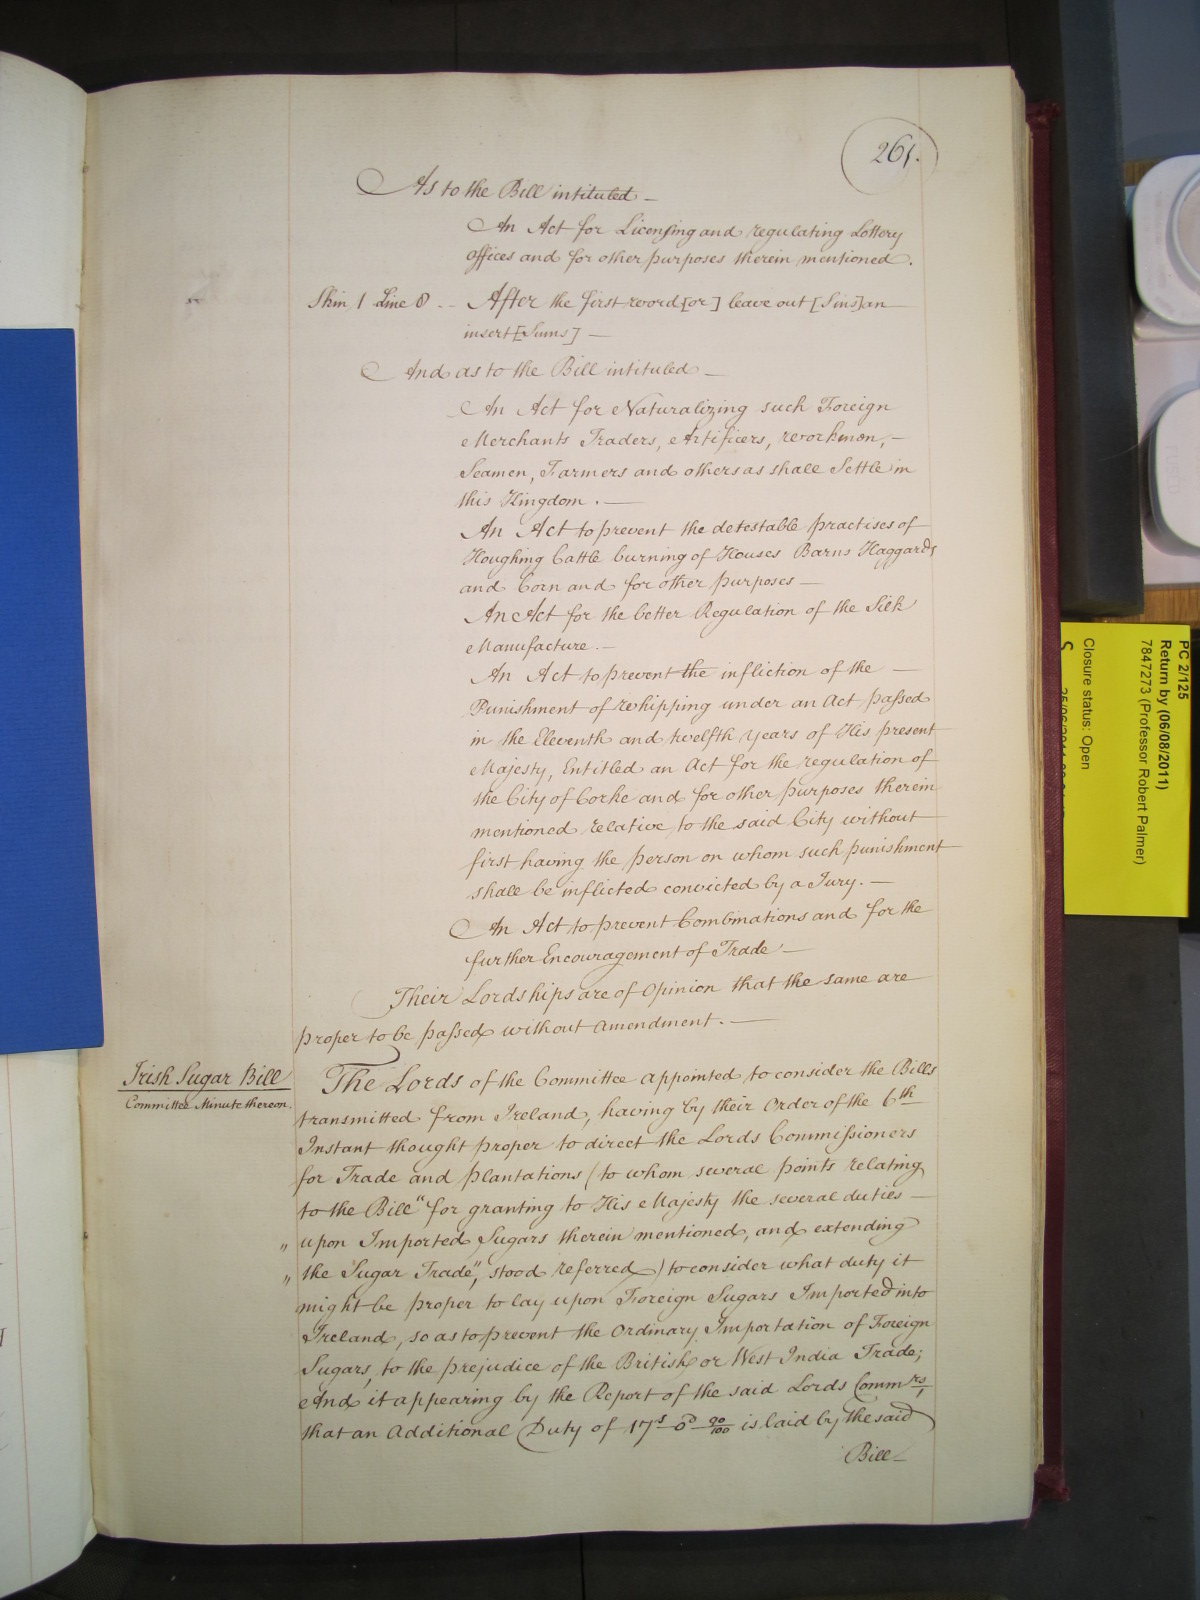 261.
As to the Bill intituled —
An Act for Licensing and regulating Lottery
offices and for other purposes therein mentioned.
Skin 1 Line 8 .. After the first word [or] leave out [Sins] an
insert [Sums] —
And as to the Bill intituled —
An Act for Naturalizing such Foreign
Merchants Traders, Artificers, workmen, —
Seamen, Farmers and others as shall Settle in
this Kingdom . —
An Act to prevent the detestable practises of
Houghing Cattle burning of Houses Barns Haggards
and Corn and for other purposes —
An Act for the better Regulation of the Silk
Manufacture. —
An Act to prevent the infliction of the —
Punishment of whipping under an Act passed
in the Eleventh and twelfth years of His present
Majesty, Entitled an Act for the regulation of
the City of Corke and for other purposes therein
mentioned relative to the said City without
first having the person on whom such punishment
shall be inflicted convicted by a Jury. —
An Act to prevent Combinations and for the
further Encouragement of Trade —
Their Lordships are of Opinion that the same are
proper to be passed without amendment. —
Irish Sugar Bill
Committee Minute thereon.
The Lords of the Committee appointed to consider the Bills
transmitted from Ireland, having by their Order of the 6th
Instant thought proper to direct the Lords Commissioners
for Trade and Plantations (to whom several points relating
to the Bill "for granting to His Majesty the several duties —
" upon Imported Sugars therein mentioned, and extending
" the Sugar Trade", stood referred) to consider what duty it
might be proper to lay upon Foreign Sugars Imported into
Ireland, so as to prevent the Ordinary Importation of Foreign
Sugars, to the prejudice of the British or West India Trade;
And it appearing by the Report of the said Lords Commrs,
that an Additional Duty of 17s 0d 90/100 is laid by the said
Bill
PC 2/125
Return by (06/08/2011)
7847273 (Professor Robert Palmer)
Closure status: Open
S